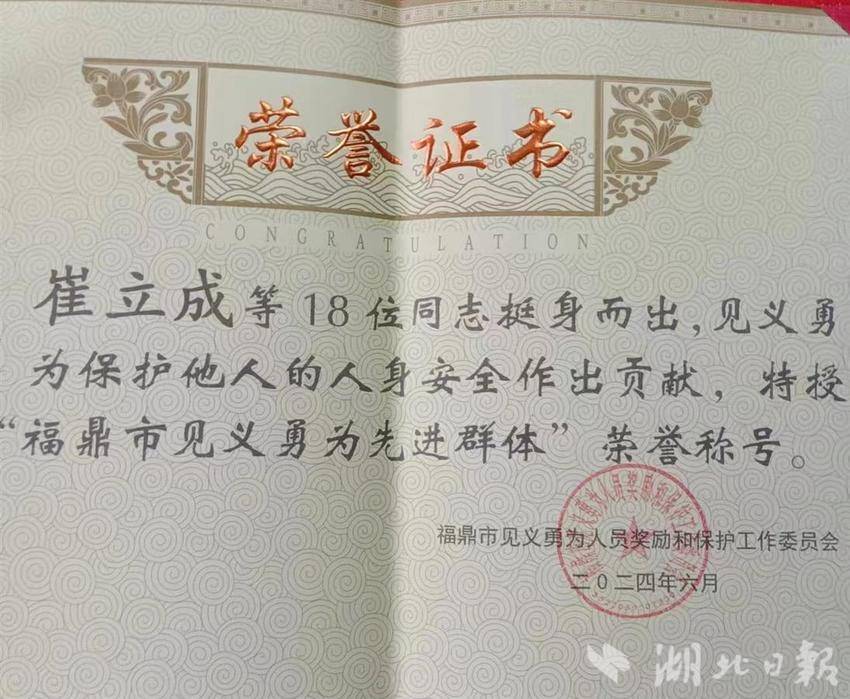 荣誉证书
CONGRATULATION
崔立成等18位同志挺身而出,见义勇
为保护他人的人身安全作出贡献，特授
“福鼎市见义勇为先进群体”荣誉称号。
福鼎市见义勇为人员奖励和保护工作委员会
二〇二四年六月
湖北日报